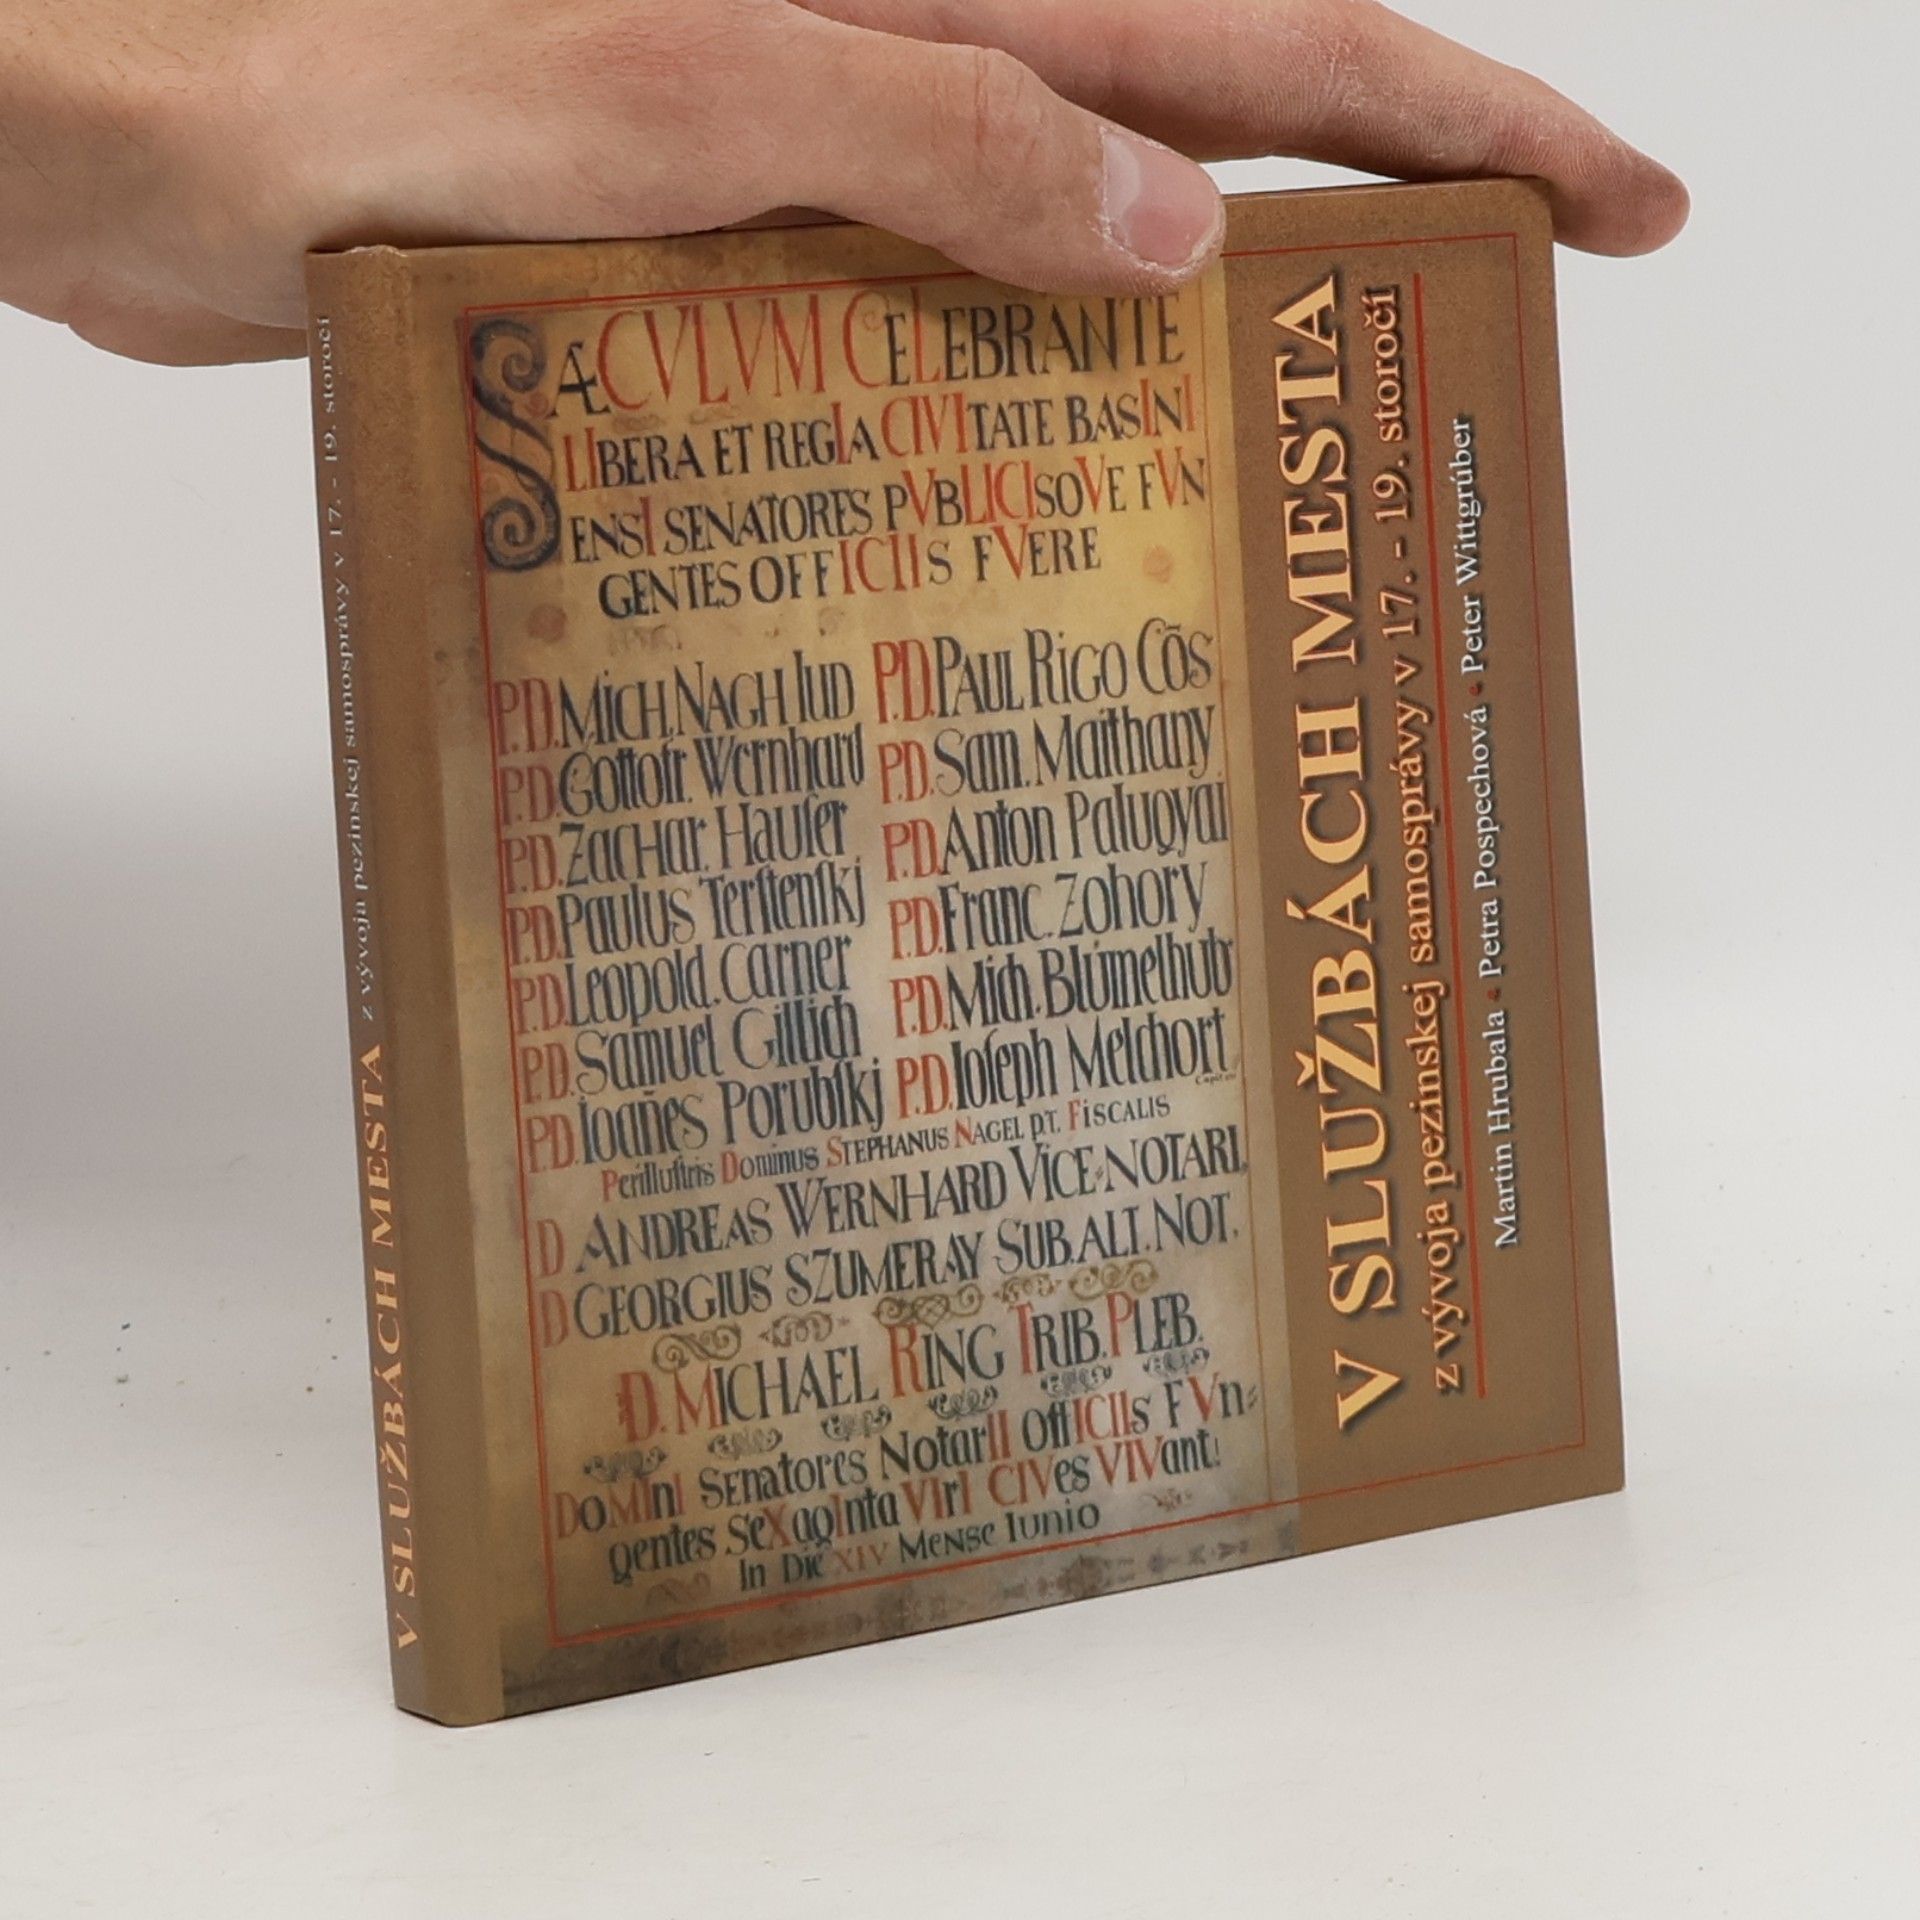 V SLUŽBÁCH MESTA z vývoja pezinskej samosprávy v 17. - 19. storočí
SÆCVLVM CELEBRANTE
LIBERA ET REGIA CIVITATE BASINI
ENSI SENATORES PVBLICISOVE FVN
GENTES OFFICIIS FVERE
P.D. MICH. NAGH IUD
P.D. Gottofr. Wernhard
P.D. Zachar. Hauſer
P.D. Paulus Terſtenſkj
P.D. Leopold. Carner
P.D. Samuel Gillich
P.D. Ioañes Porubſkj
P.D. PAUL RIGO CÕS
P.D. Sam. Maithany
P.D. Anton Palugyai
P.D. Franc. Zohory
P.D. Mich. Blúmelhub
P.D. Ioſeph Melchort
Perilluſtris Dominus STEPHANUS NAGEL p.t. FISCALIS
D ANDREAS WERNHARD VICE-NOTARI.
D GEORGIUS SZUMERAY SUB.ALT. NOT.
D. MICHAEL RING TRIB. PLEB.
DoMInI SEnatores NotarII OffICIIs FVn-
gentes SeXagInta VIrI CIVes VIVant!
In Die XIV Mense Iunio
V SLUŽBÁCH MESTA
z vývoja pezinskej samosprávy v 17. - 19. storočí
Martin Hrubala • Petra Pospechová • Peter Wittgrúber